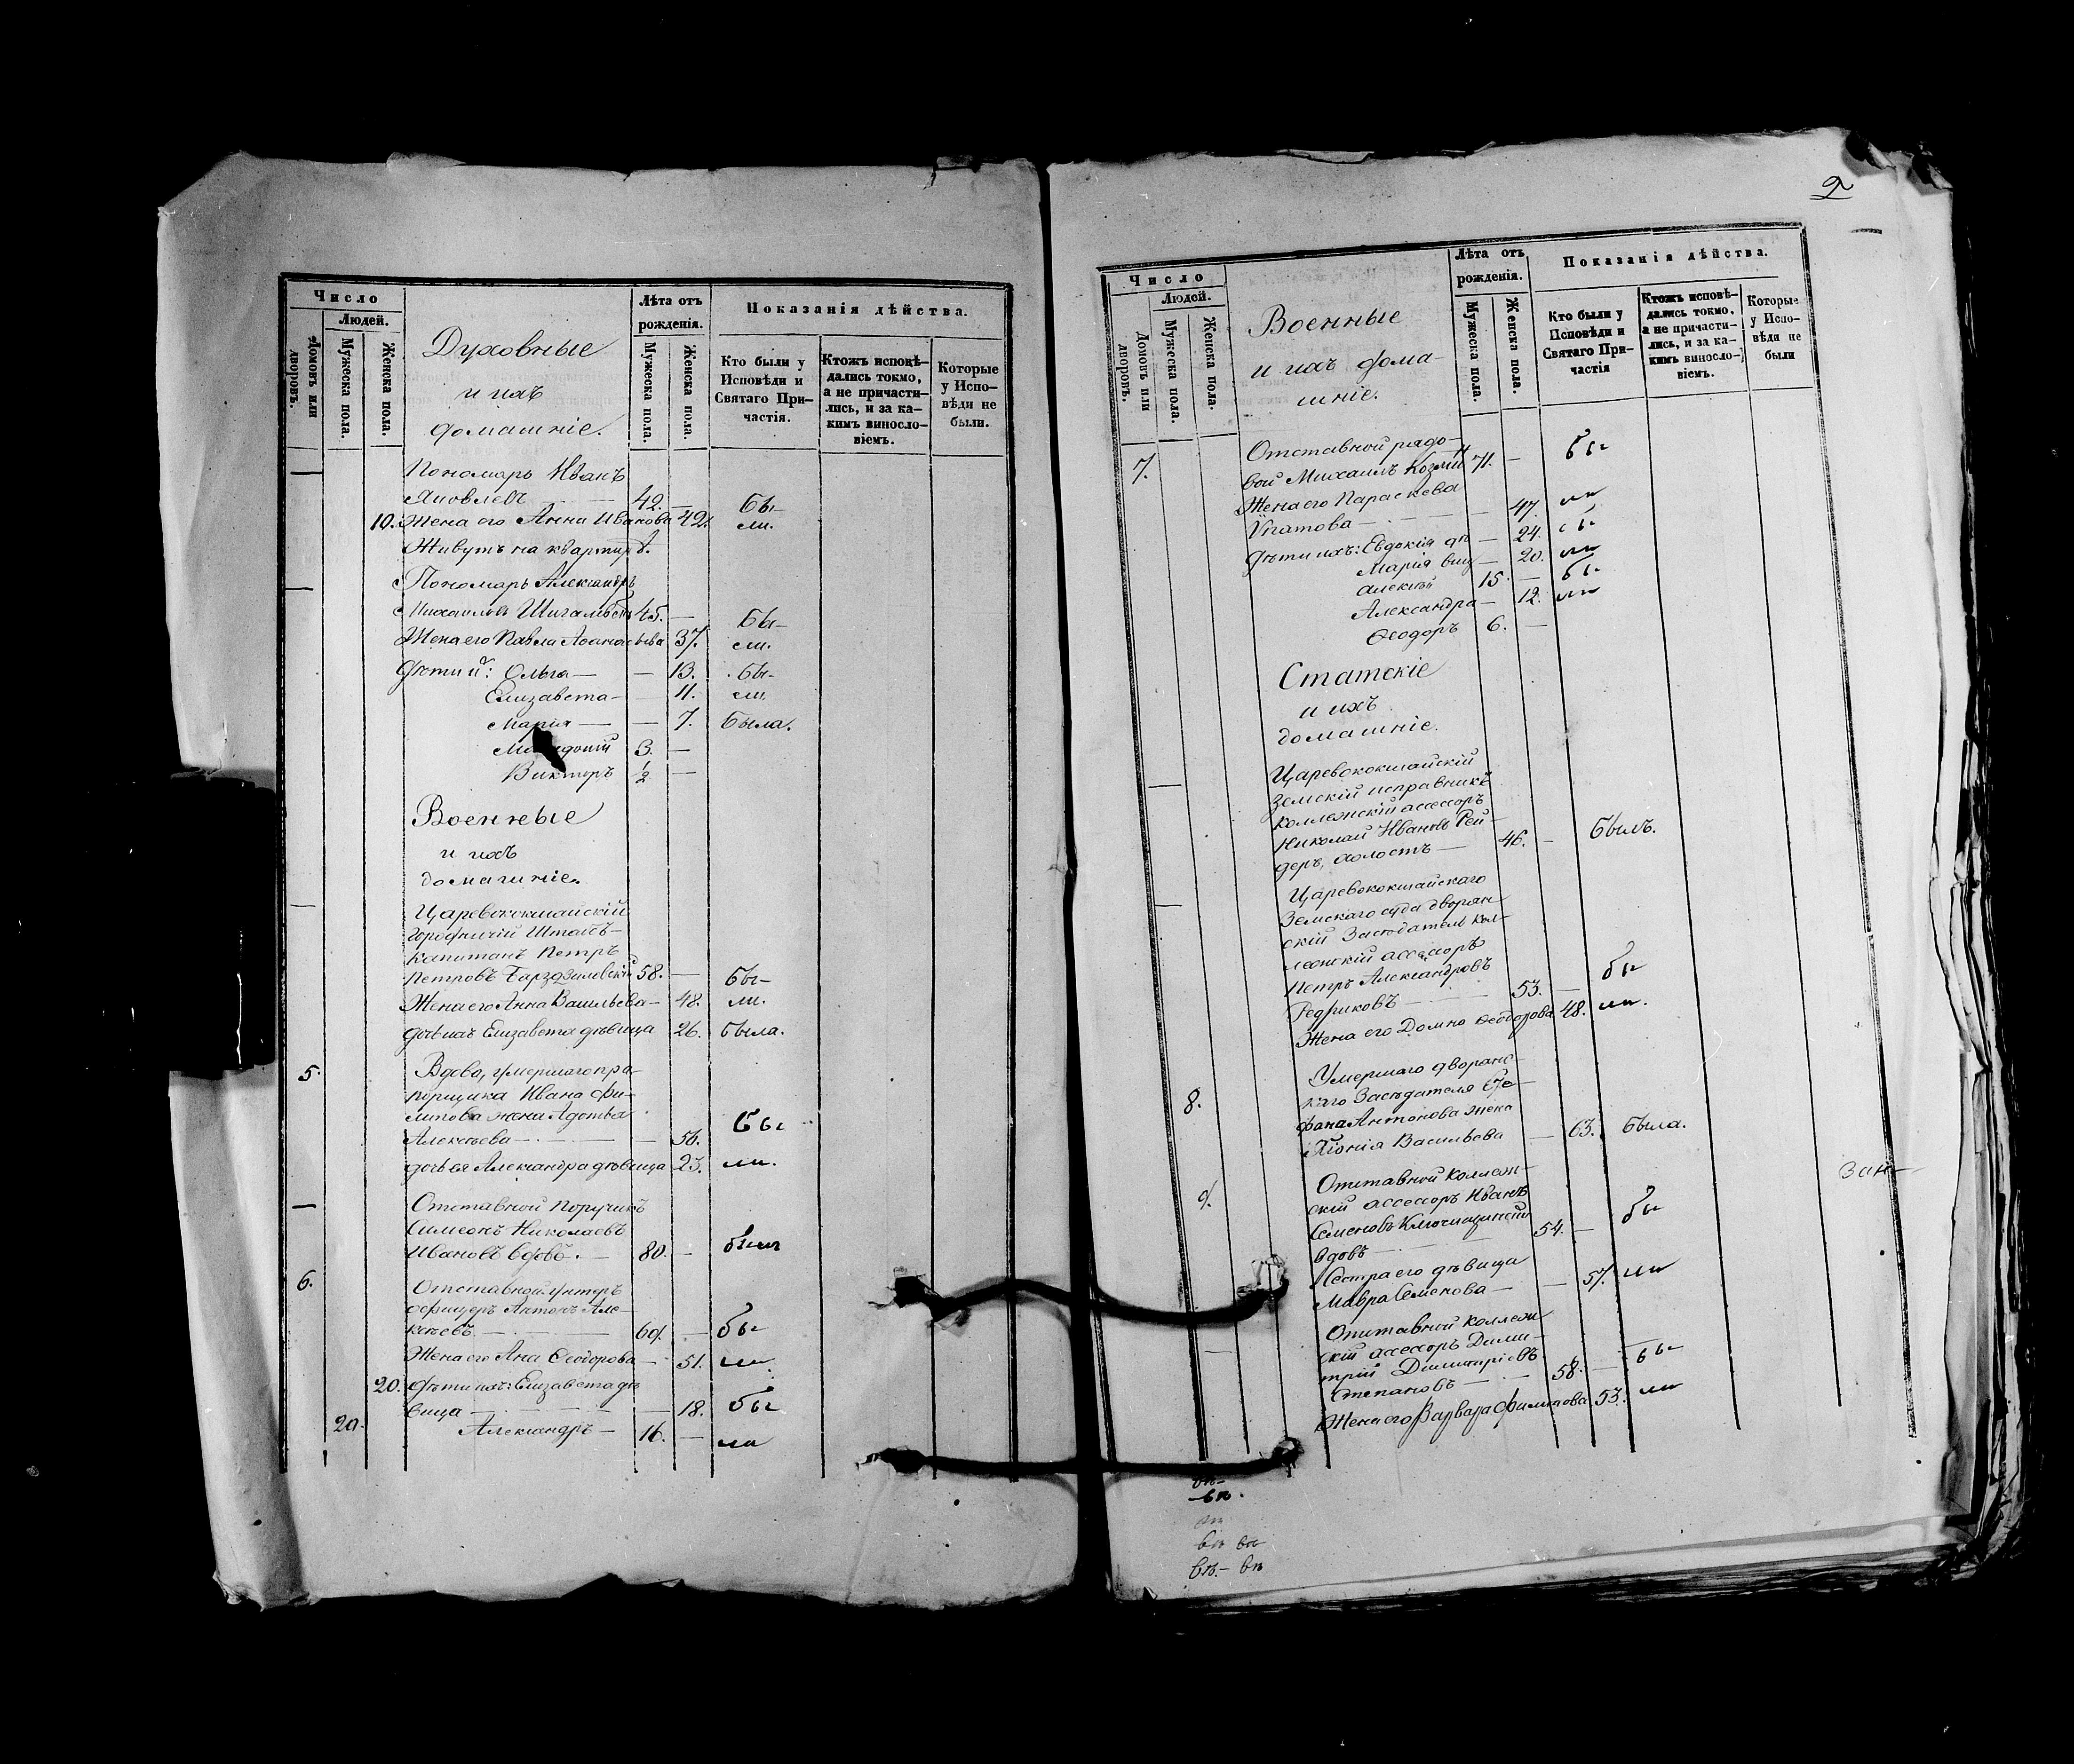 Число
Людей.
Домовъ или дворовъ.
Мужеска пола.
Женска пола.
Духовные
и ихъ
домашніе.
Лѣта отъ
рожденія.
Мужеска пола.
Женска пола.
Показанія дѣйства.
Кто были у
Исповѣди и
Святаго При-
частія.
Ктожъ исповѣ-
дались токмо,
а не причасти-
лись, и за ка-
кимъ винosло-
віемъ.
Которые
у Испо-
вѣди не
были.
— Пономарь Иванъ
Яковлевъ — 42. — бы-
10. Жена его Анна Иванова 42. ли.
Живутъ на квартирѣ.
— Пономарь Александръ
Михаиловъ 45. — бы-
Жена его Павла Аѳанасьева 37. ли.
Дѣти и: Ольга — — 13. бы-
Елизавета — — 11. ли.
Марія — — 7. была.
3. —
Викторъ 1/2 —
Военные
и ихъ
домашніе.
— Царевококшайскій
Городничій Штабъ-
капитанъ Петръ
Петровъ 58. — бы-
Жена его Анна Васильева — 48. ли.
дочь ихъ Елизавета дѣвица 26. была.
5. Вдова, умершаго пра-
порщика Ивана Фи-
липова жена Адотья
Алексѣева — — 56. бы-
дочь ея Александра дѣвица 23. ли.
— Отставной Поручикъ
Симеонъ Николаевъ
Ивановъ вдовъ. — 80. — былъ
6. Отставной унтеръ
офицеръ Антонъ Але-
ксѣевъ — 69. — бы-
Жена его Ана Ѳеодорова — 51. ли
20. Дѣти ихъ: Елизавета дѣ-
вица — — 18. бы-
20. Александръ — 16. — ли
2
Число
Людей.
Домовъ или дворовъ.
Мужеска пола.
Женска пола.
Военные
и ихъ дома-
шніе.
Лѣта отъ
рожденія.
Мужеска пола.
Женска пола.
Показанія дѣйства.
Кто были у
Исповѣди и
Святаго При-
частія
Ктожъ исповѣ-
дались токмо,
а не причасти-
лись, и за ка-
кимъ винosло-
віемъ.
Которые
у Испо-
вѣди не
были
7. Отставной рядо-
вой Михаилъ Козминъ 71. — бы-
Жена его Параскева
Ѵпатова — — 47. ли
Дѣти ихъ: Евдокія дѣ — 24. бы-
Марія виц — 20. ли
Алексѣй 15. — бы-
Александра — 12. ли
Ѳеодоръ 6. —
Статскіе
и ихъ
домашніе.
— Царевококшайскій
Земскій исправникъ
коллежскій ассесоръ
Николай Ивановъ Рей-
деръ, холостъ — 46. — былъ.
— Царевококшайскаго
Земскаго суда дворян-
скій Засѣдатель кол-
лежскій ассесоръ
Петръ Александровъ
Редриковъ — 53. — бы
Жена его Домна Ѳеодорова 48. ли.
8. Умершаго дворянс-
каго Засѣдателя Сте-
фана Антонова жена
Хіонія Васильева — 63. была.
9. Отставной коллеж-
скій ассесоръ Иванъ
Семеновъ Ключищинскій
вдовъ — 54. — бы
Сестра его дѣвица
Мавра Семенова — — 57. ли
— Отставной коллеж-
скій ассесоръ Дими-
трій Димитріевъ
Степановъ — 58. — бы-
Жена его Варвара Филипова 53. ли